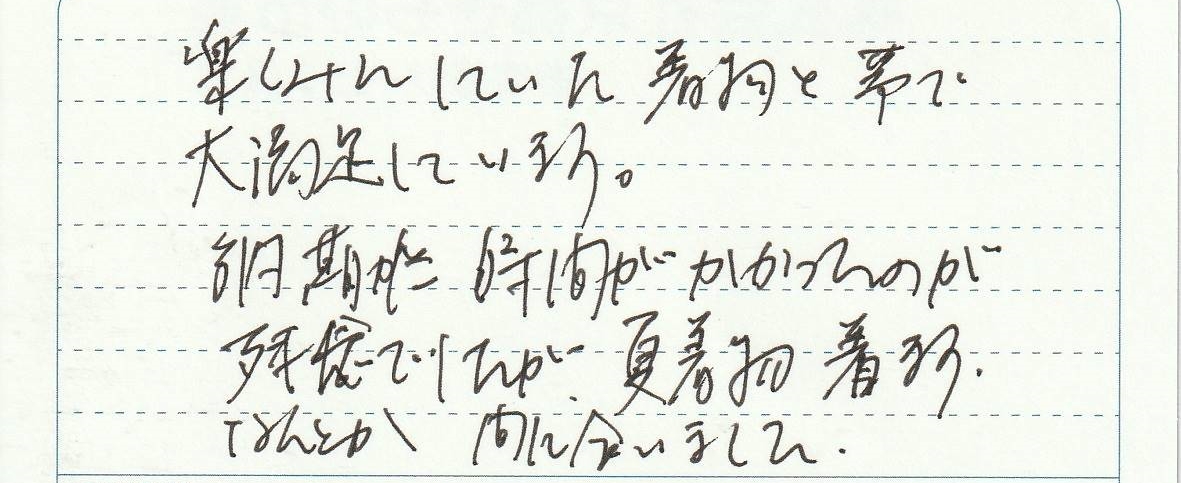 楽しみにしていた着物と帯で
大満足しています。
納期が 時間がかかったのが
残念でしたが、夏着物 着ます.
なんとか 間に合いました.